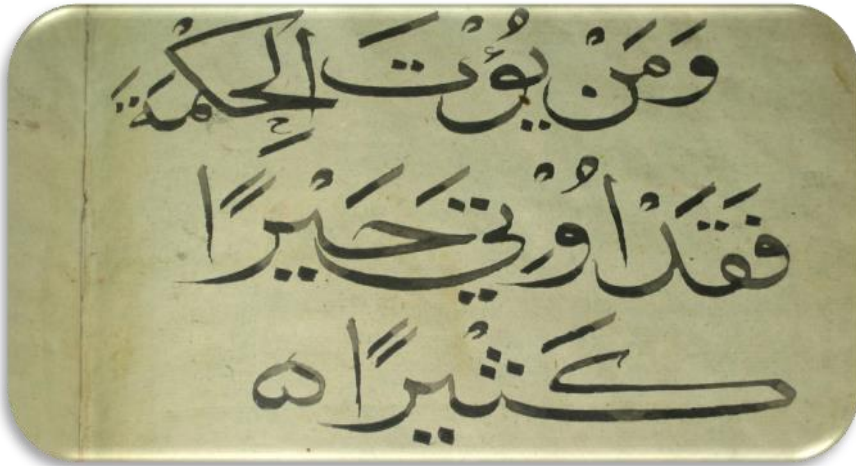 وَمَنْ يُؤْتَ الْحِكْمَةَ
فَقَدْ اُوْتِيَ خَيْرًا
كَثِيْرًا ۵